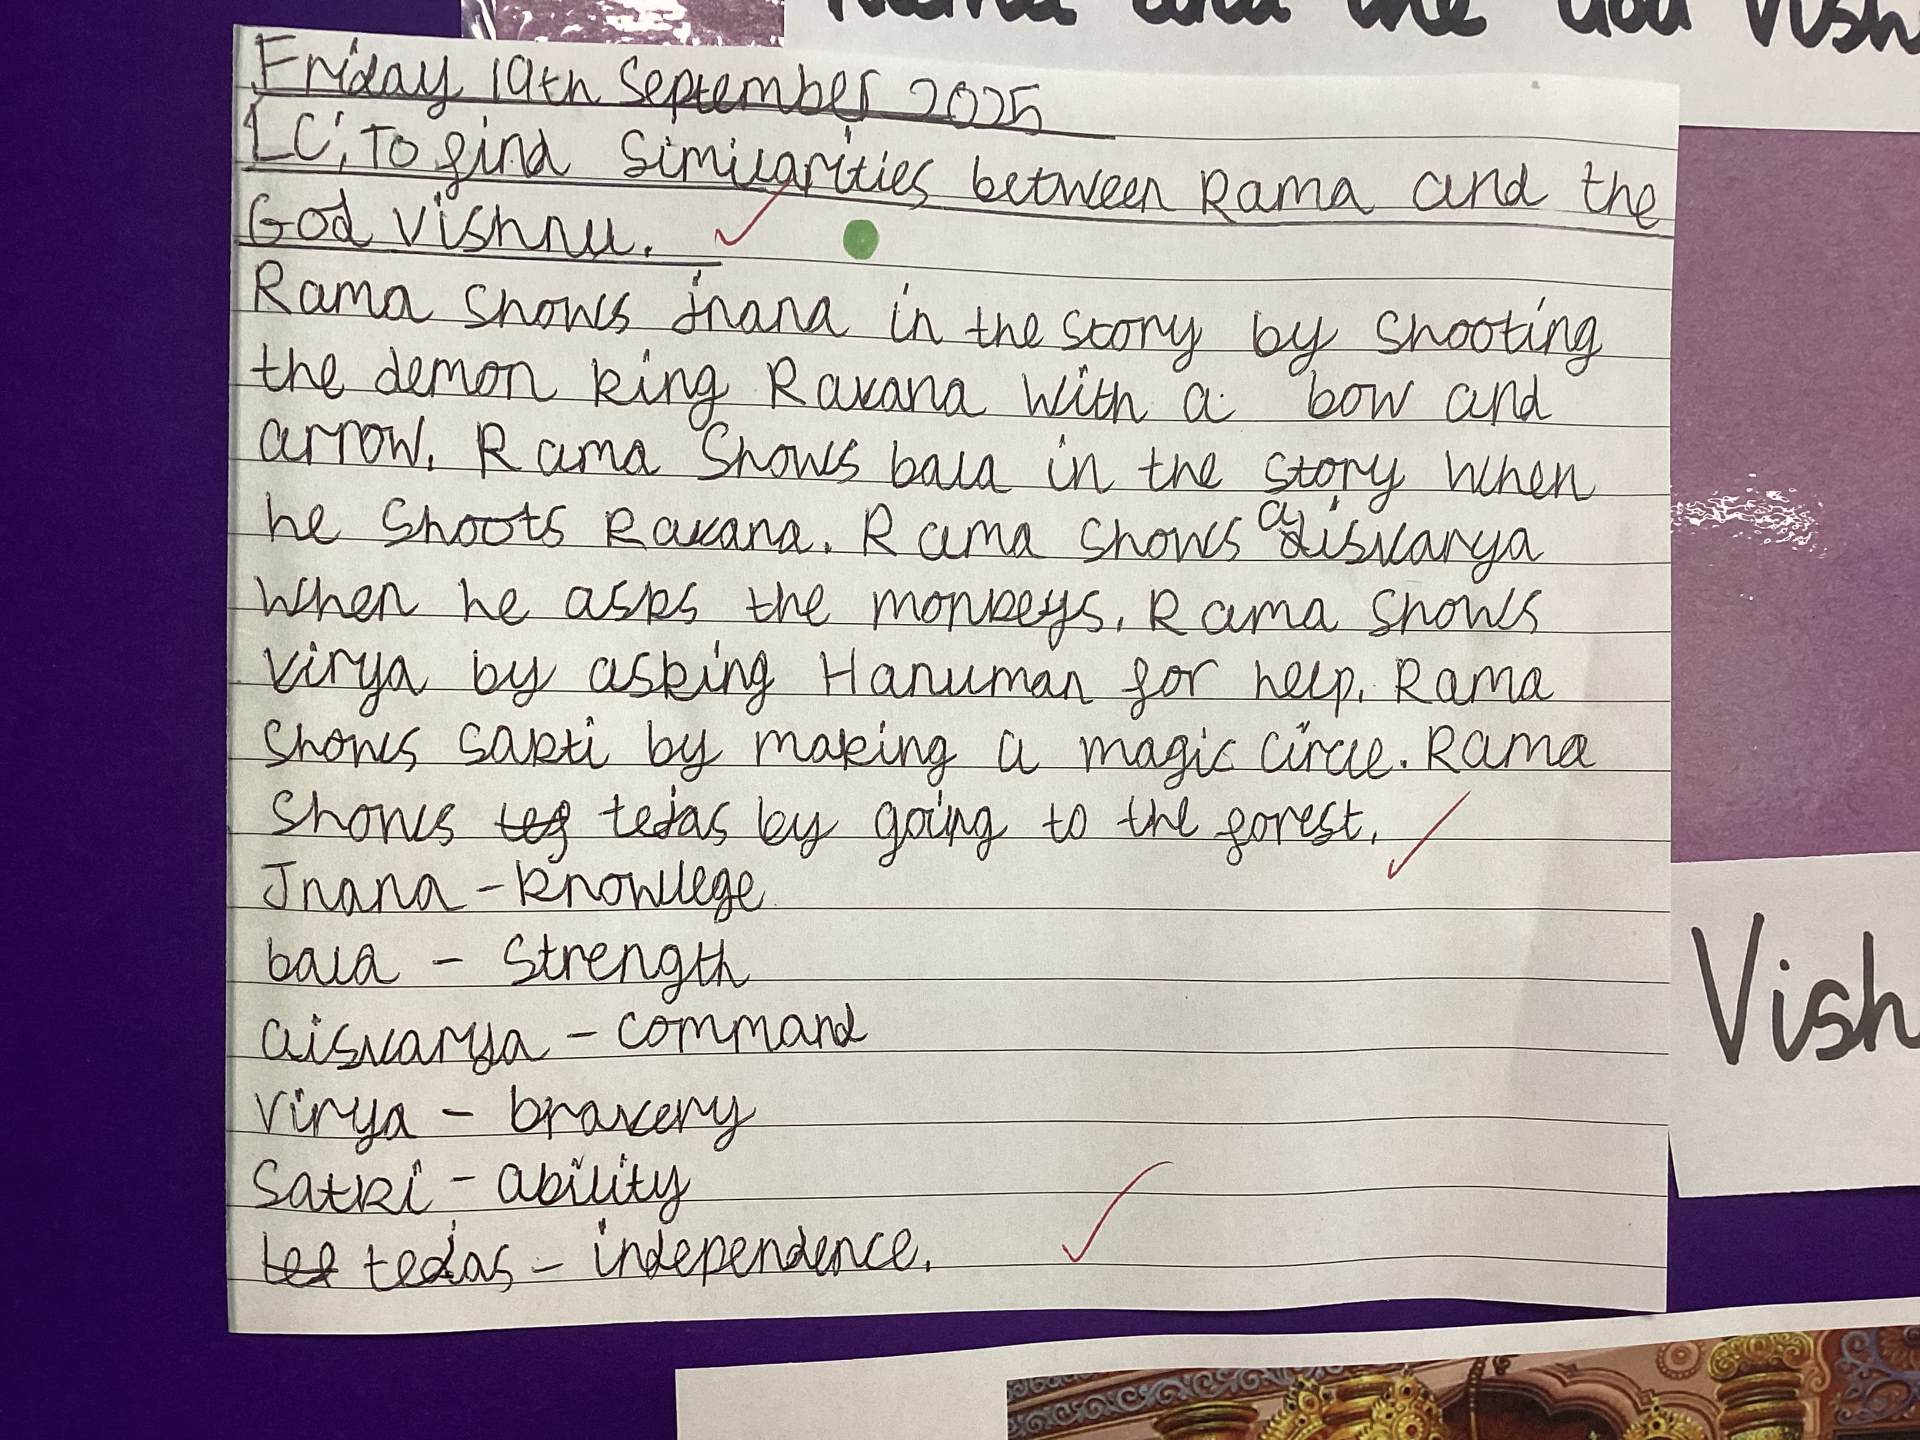 Rama and the God Vish
Friday 19th September 2025
LC: To find similarities between Rama and the
God Vishnu.
Rama shows jnana in the story by shooting
the demon king Ravana with a bow and
arrow. Rama shows bala in the story when
he shoots Ravana. Rama shows aisvarya
when he asks the monkeys. Rama shows
virya by asking Hanuman for help. Rama
shows sakti by making a magic circle. Rama
shows tejas by going to the forest.
Jnana - knowllege
bala - strength
aisvarya - command
virya - bravery
Satki - ability
tejas - independence.
Vish